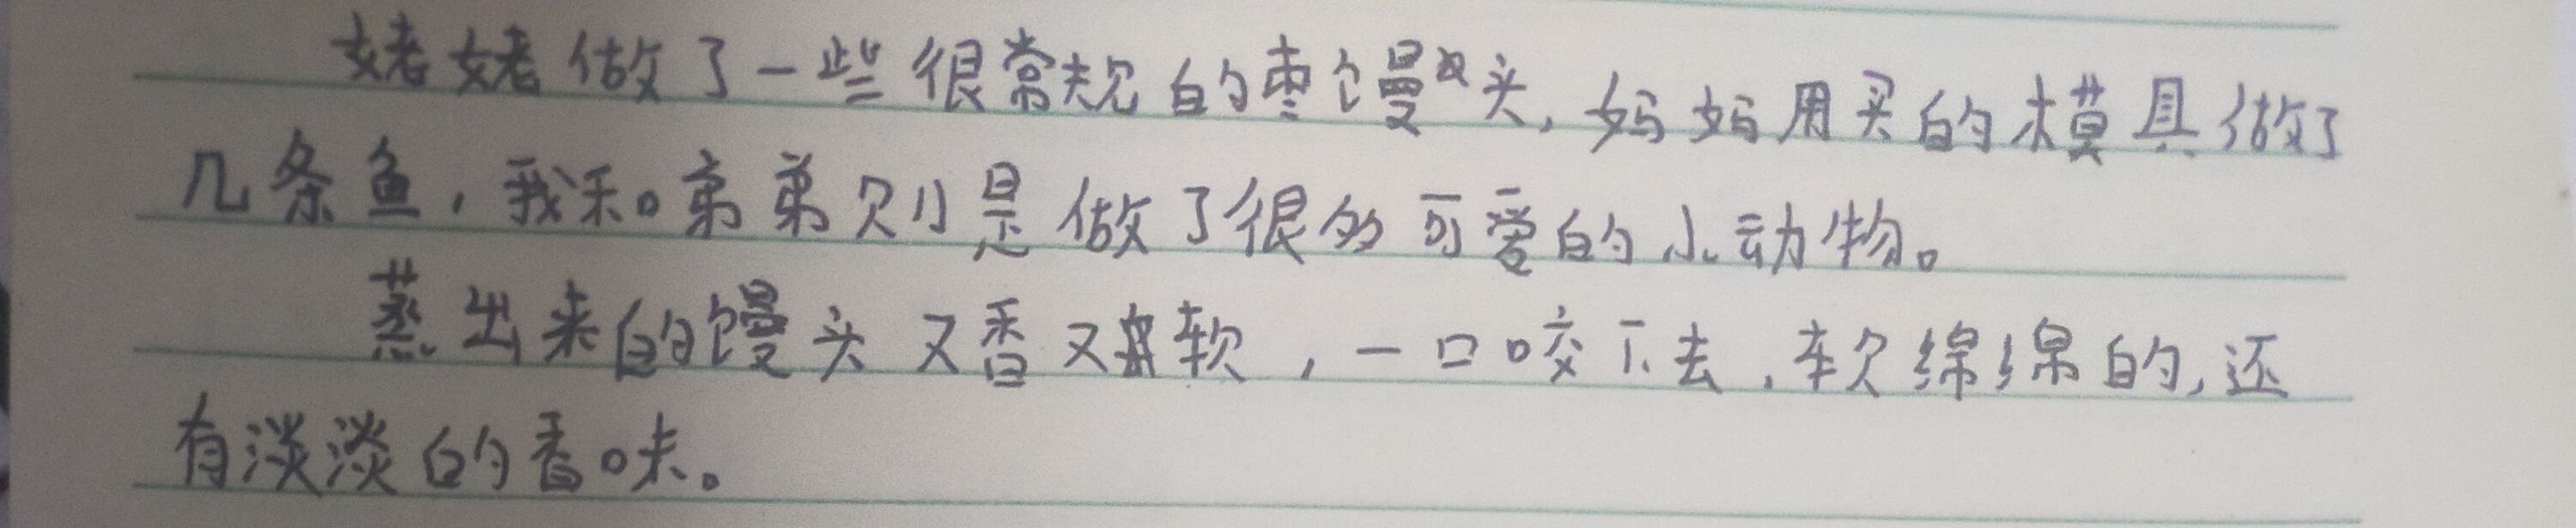 姥姥做了一些很常规的枣馒头,妈妈用买的模具做了
几条鱼,我和弟弟则是做了很多可爱的小动物。
蒸出来的馒头又香又软,一口咬下去,软绵绵的,还
有淡淡的香味。